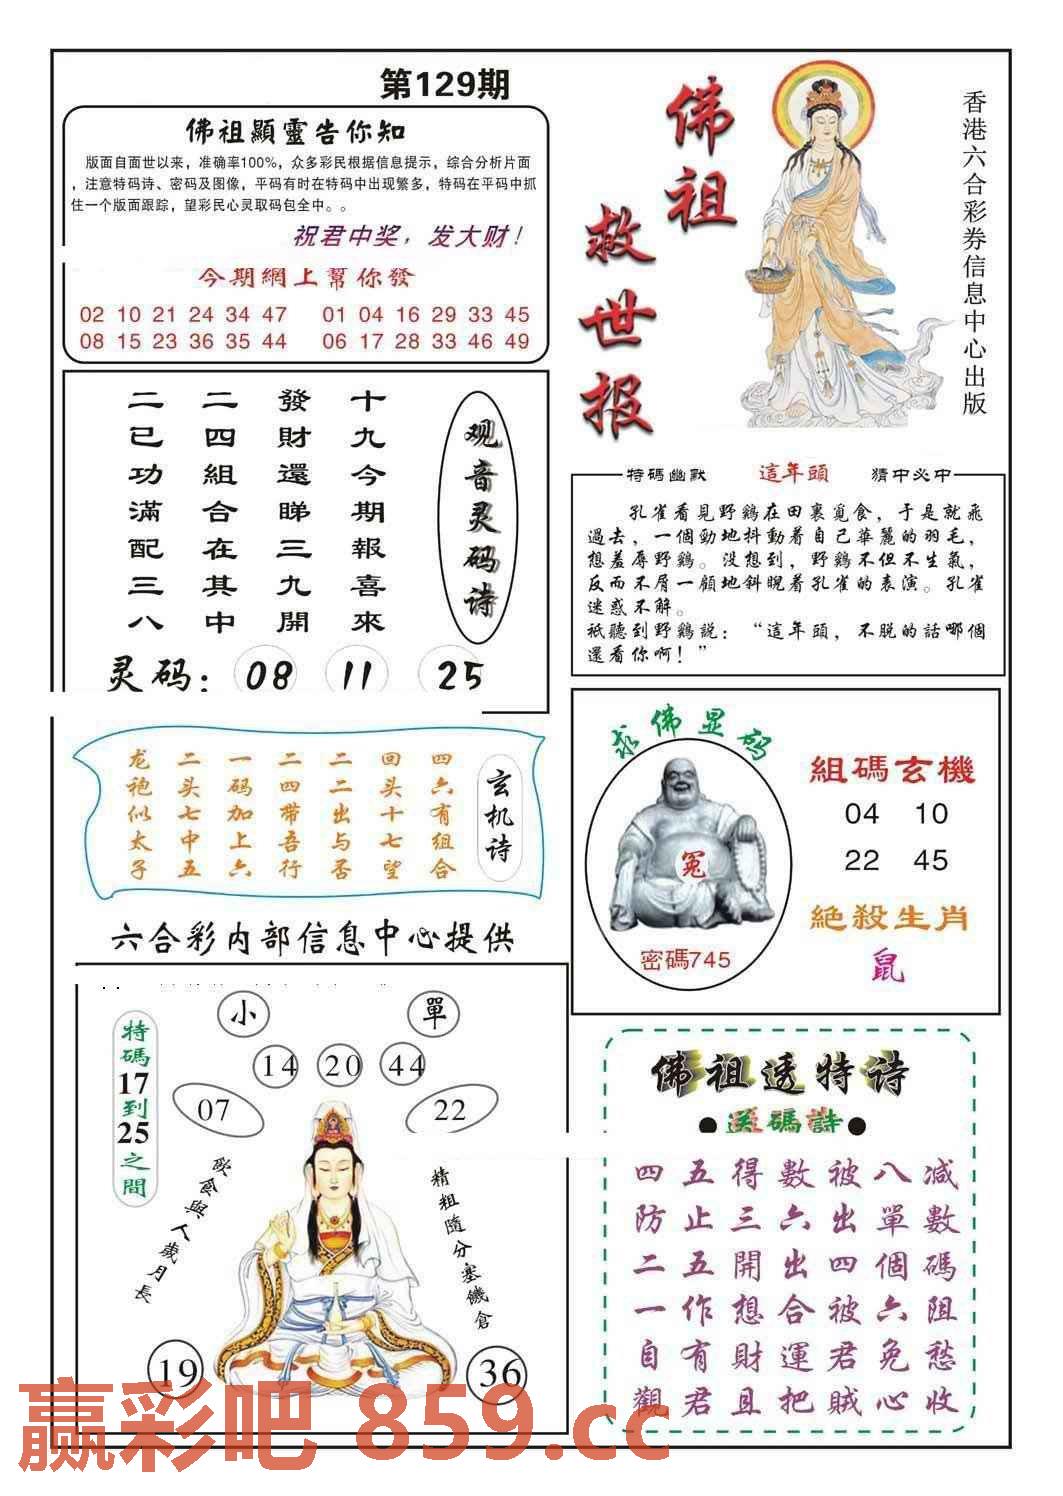 第129期
佛祖顯靈告你知
版面自面世以来，准确率100%，众多彩民根据信息提示，综合分析片面
，注意特码诗、密码及图像，平码有时在特码中出现繁多，特码在平码中抓
住一个版面跟踪，望彩民心灵取码包全中。。
祝君中奖，发大财！
今期網上幫你發
02 10 21 24 34 47 01 04 16 29 33 45
08 15 23 36 35 44 06 17 28 33 46 49
佛祖
救世报
香港六合彩券信息中心出版
观音灵码诗
十九今期報喜來
發財還睇三九開
二四組合在其中
二已功滿配三八
灵码：08 11 25
特碼幽默 這年頭 猜中必中
孔雀看見野鷄在田裏覓食，于是就飛
過去，一個勁地抖動着自己華麗的羽毛，
想羞辱野鷄。没想到，野鷄不但不生氣，
反而不屑一顧地斜睨着孔雀的表演。孔雀
迷惑不解。
衹聽到野鷄説：“這年頭，不脱的話哪個
還看你啊！”
玄机诗
四六有组合
回头十七望
二二出与否
二四带吾行
一码加上六
二头七中五
龙袍似太子
求佛显码
冤
密碼745
組碼玄機
04 10
22 45
絕殺生肖
鼠
六合彩内部信息中心提供
特碼17到25之間
小 單
14 20 44
07 22
飲食與人歲月長
精粗隨分塞饑倉
19 36
佛祖透特诗
送碼詩
四五得數被八減
防止三六出單數
二五開出四個碼
一作想合被六阻
自有財運君免愁
觀君且把賊心收
赢彩吧 859.cc